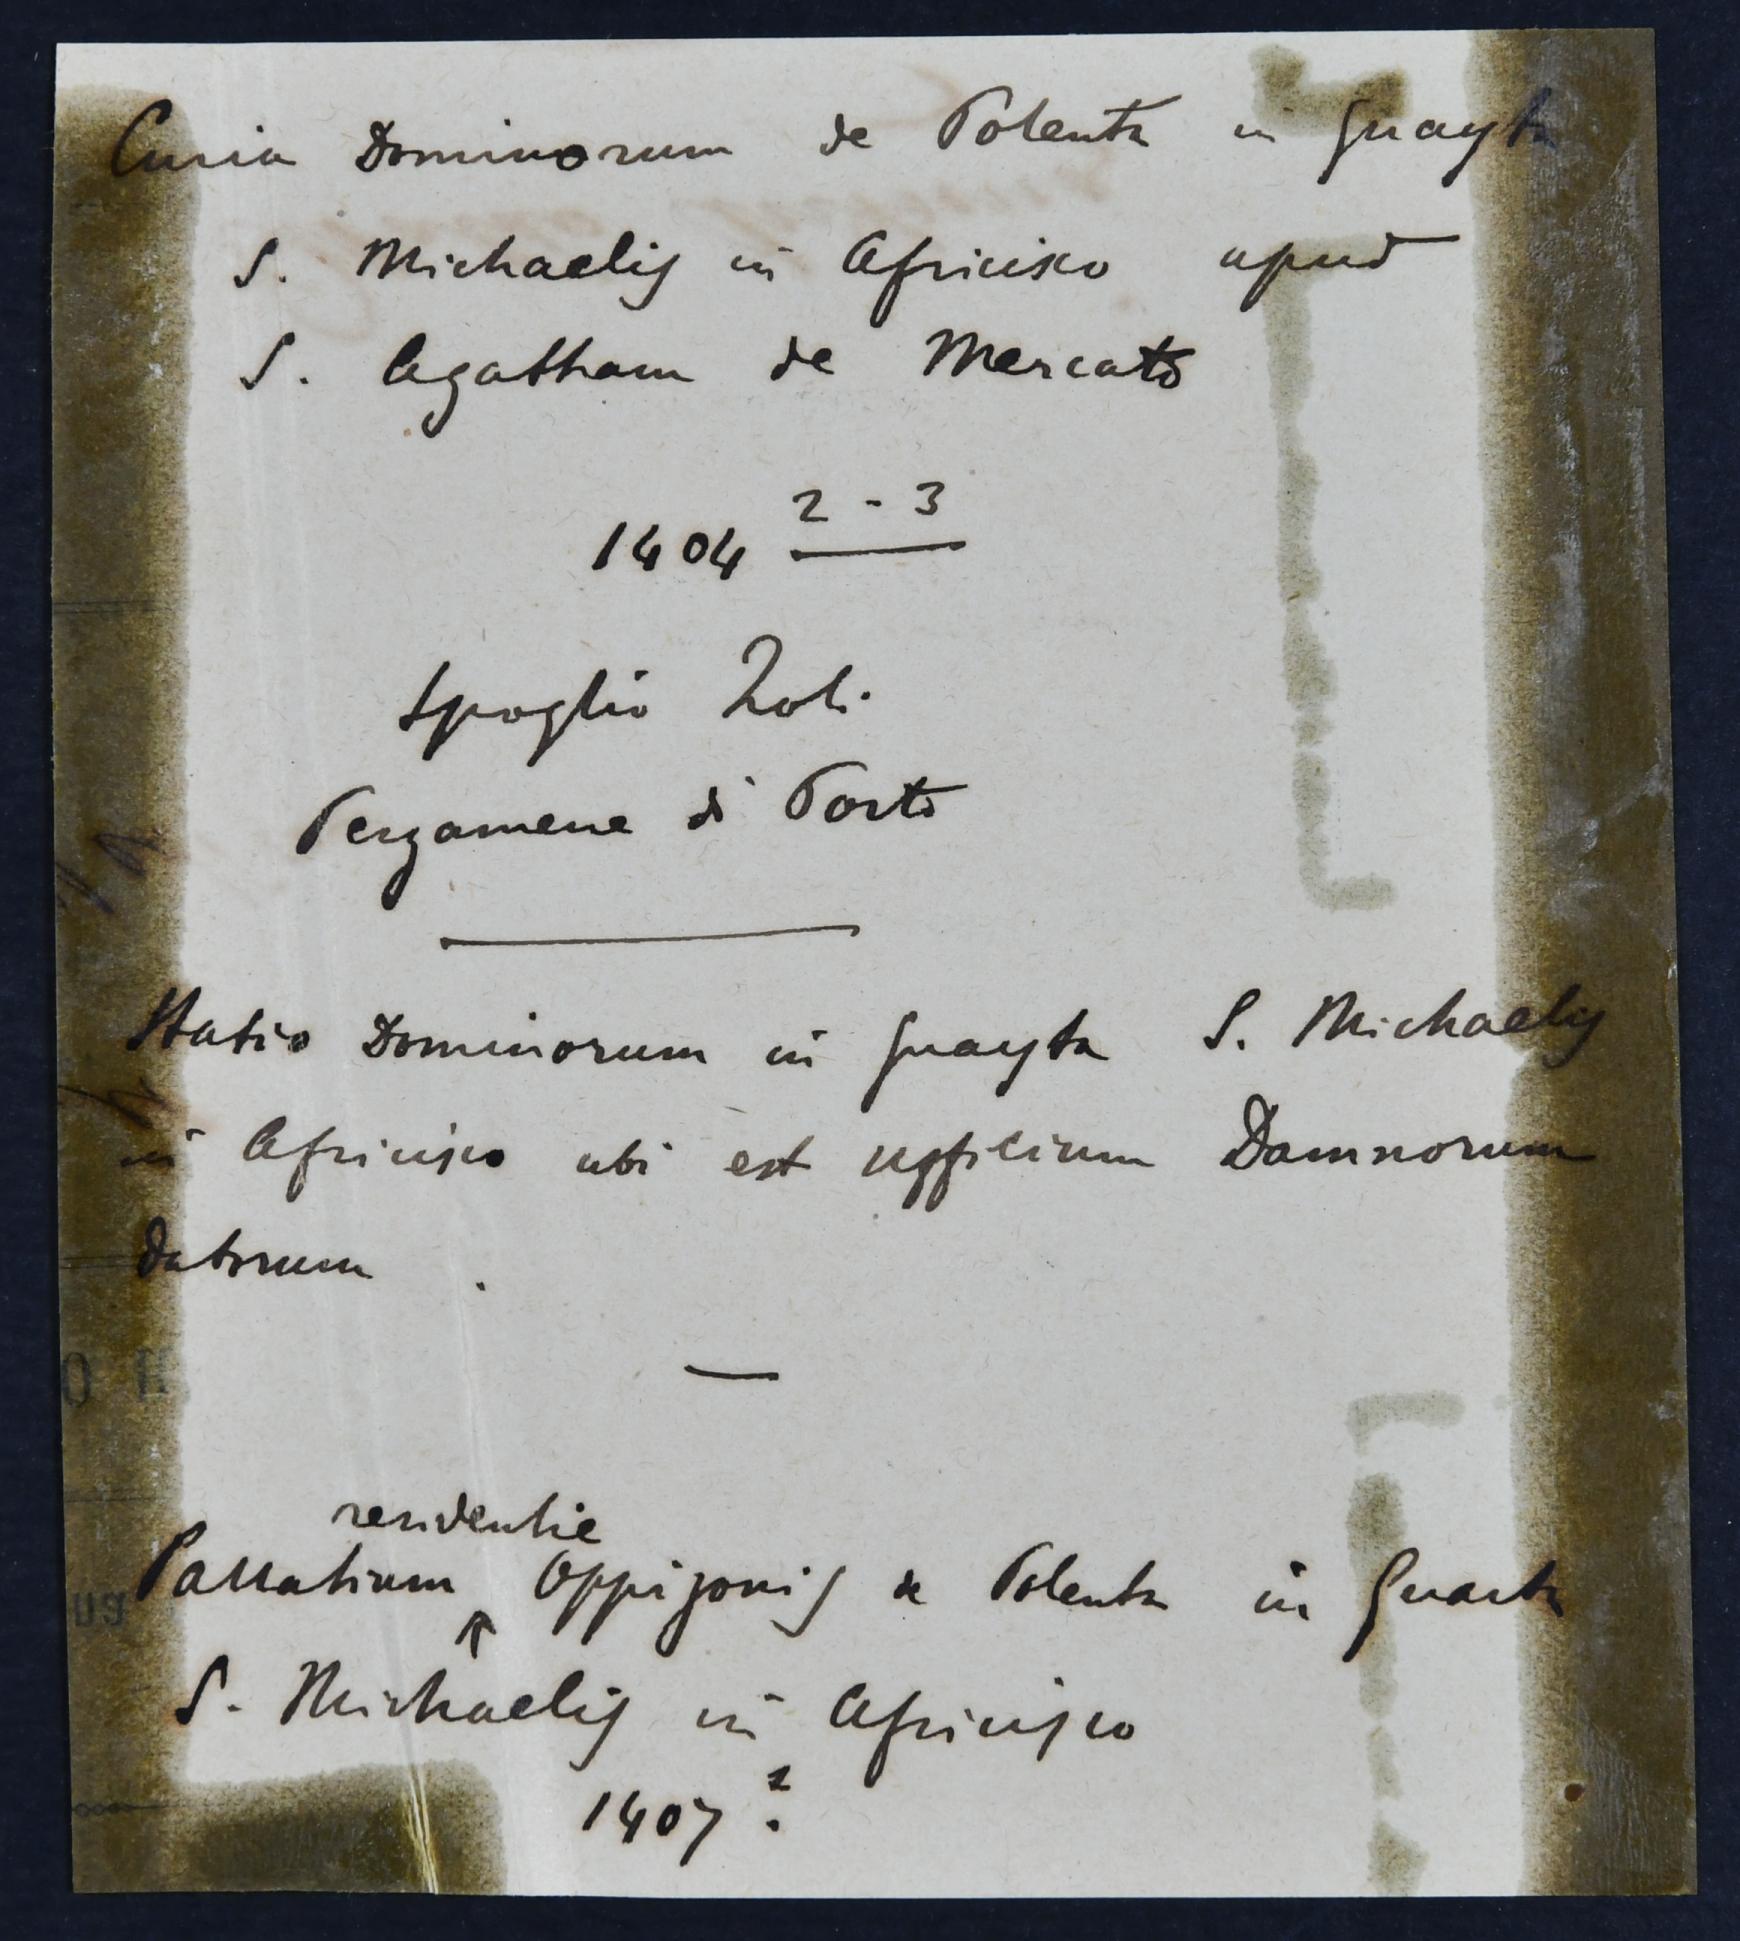 Curia Dominorum de Polenta in Guayta
S. Michaelis in Africisco apud
S. Agatham de Mercato
1404 2 - 3
Spoglio Zoli.
Pergamene di Porto
Statio Dominorum in Guayta S. Michaelis
in Africisco ubi est ufficium Damnorum
datorum.
residentie
Pallatium Oppizonis de Polenta in Guaita
S. Michaelis in Africisco
1407 ?